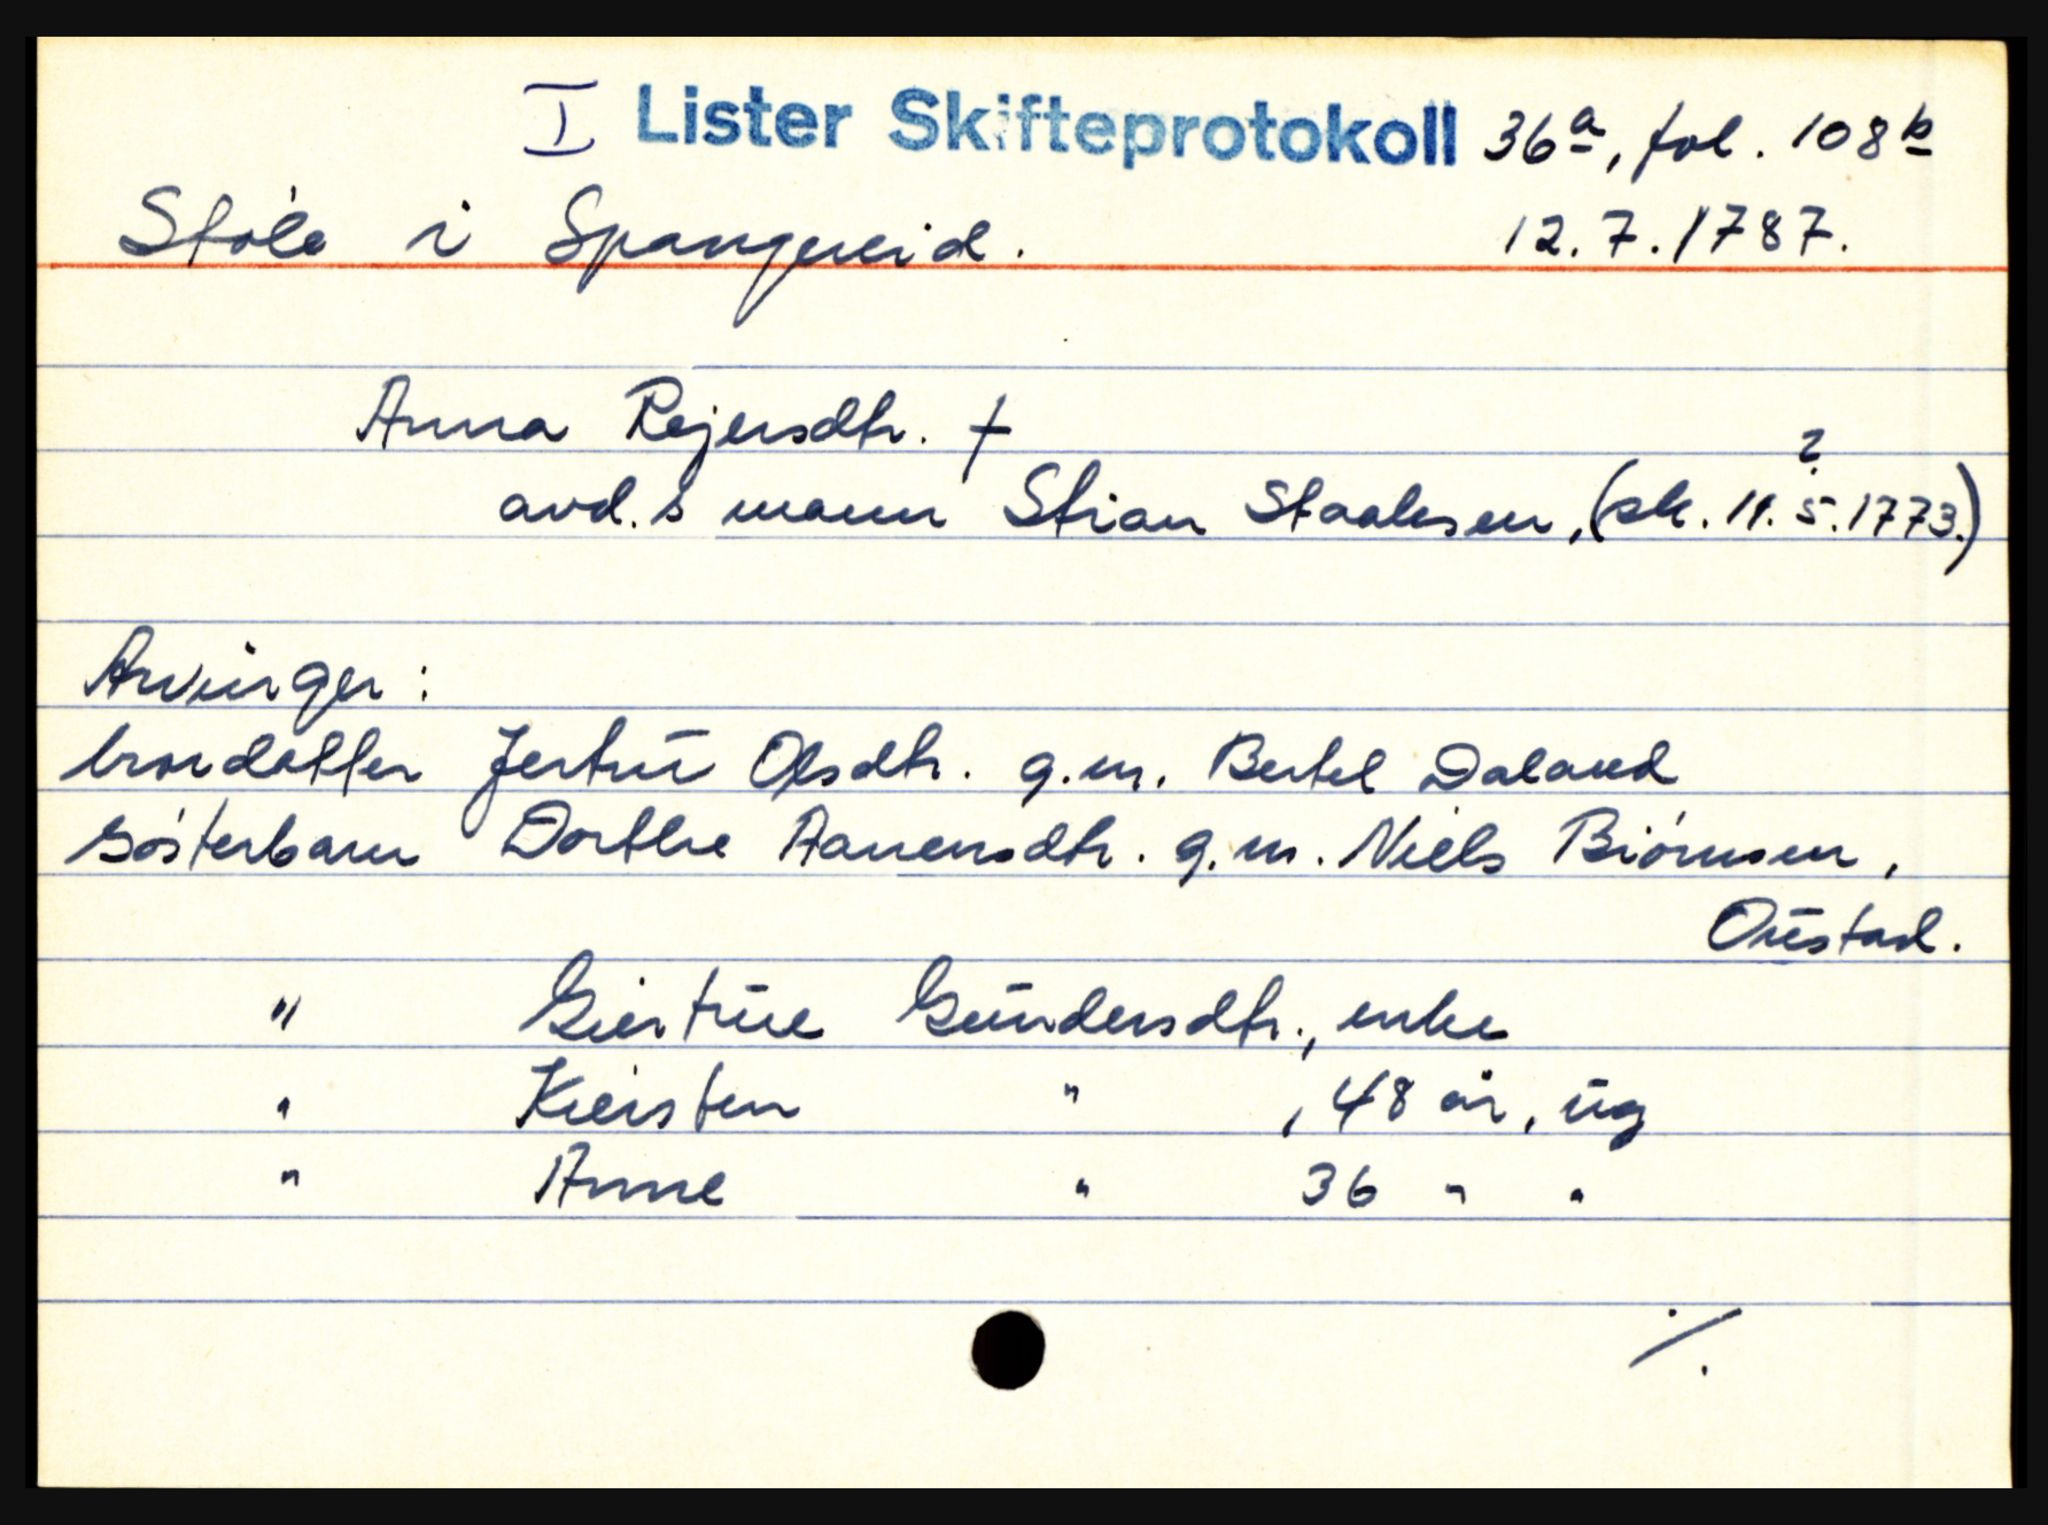 I Lister Skifteprotokoll 36a, fol. 108b
Støle i Spangereid. 12.7.1787.
Anna Rejersdtr. †
?
avd.s mann Stian Staalesen, (sk. 11.5.1773.)
Arvinger:
brordatter Jertrū Olsdtr. g.m. Bertel Daland
søsterbarn Dorthe Aanensdtr. g.m. Niels Biørnsen,
Oūstad.
" Giertrūe Gūndersdtr., enke
" Kiersten " , 48 år, ūg
" Anne " 36 " "
./.